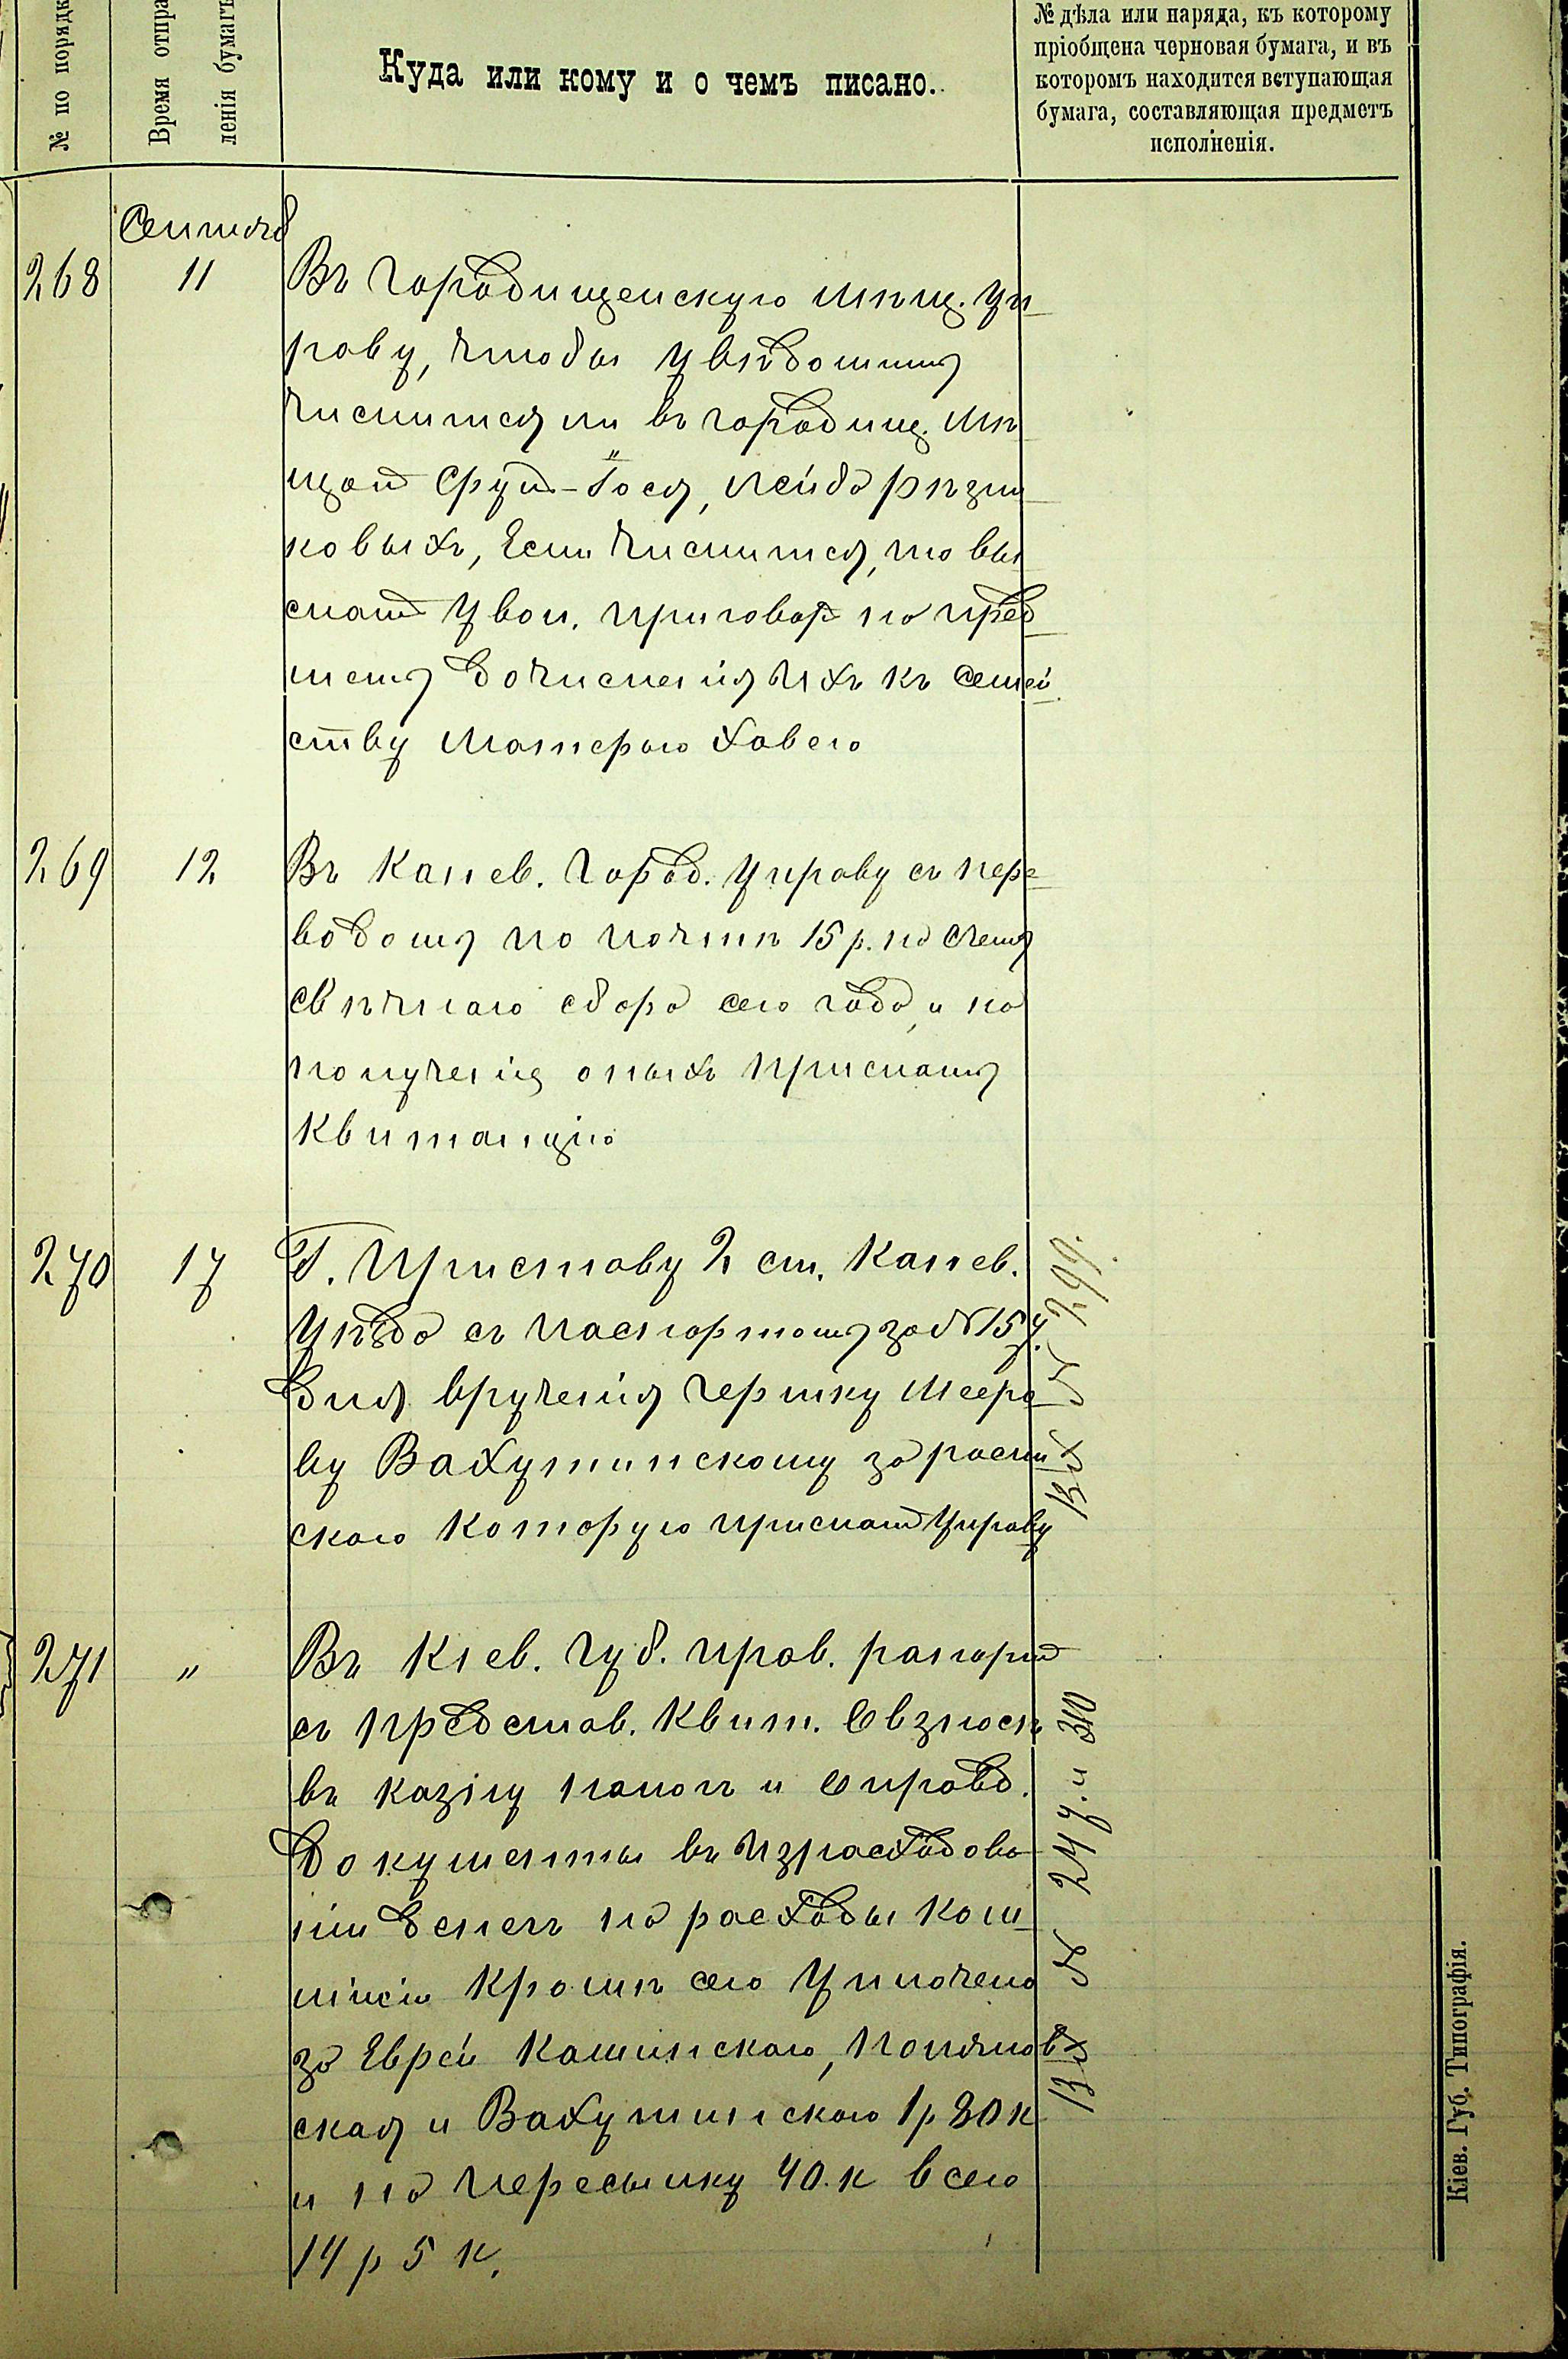 № по порядк
Время отпра
ленія бумагъ
Куда или кому и о чемъ писано.
№ дѣла или наряда, къ которому
пріобщена черновая бумага, и въ
которомъ находится вступающая
бумага, составляющая предметъ
исполненія.
Сентяб
268 11 Въ Городищенскую мѣщ. Уп
раву, чтобы увѣдомить
числится ли въ городищ. мѣ
щан Фруд-Гося, Лейба рѣзни
ковыхъ, Если числится, то вы
слать увол. приговоръ на пред
метъ дочисленія ихъ къ семей
ству матерью Хавею
269 12 Въ Канев. Город. Управу съ пере
водомъ по почтѣ 15 р. на счетъ
свѣчнаго сбора сего года, и по
полученіи оныхъ прислать
Квитанцію
270 17 Г. Приставу 2 ст. Канев.
Уѣзда съ паспортомъ за № 157.
для вручения Гершку Мееро
ву Вахутинскому за распи
скою которую прислать Управу
Вх № 299.
271 " Въ Кіев. Губ. прав. рапортъ
съ представ. Квит. О взносѣ
въ казну налог и Оправд.
Документы въ Израсходова
ніи денегъ на расходы Ком
мисіи Кромѣ сего уплочено
за Еврей Кашинского, Поляно
ская и Вахутинского 1 р 80 к
и на пересылку 40. к всего
14 р 5 к.
Вх № 247. и 310
Кіев. Губ. Типографія.